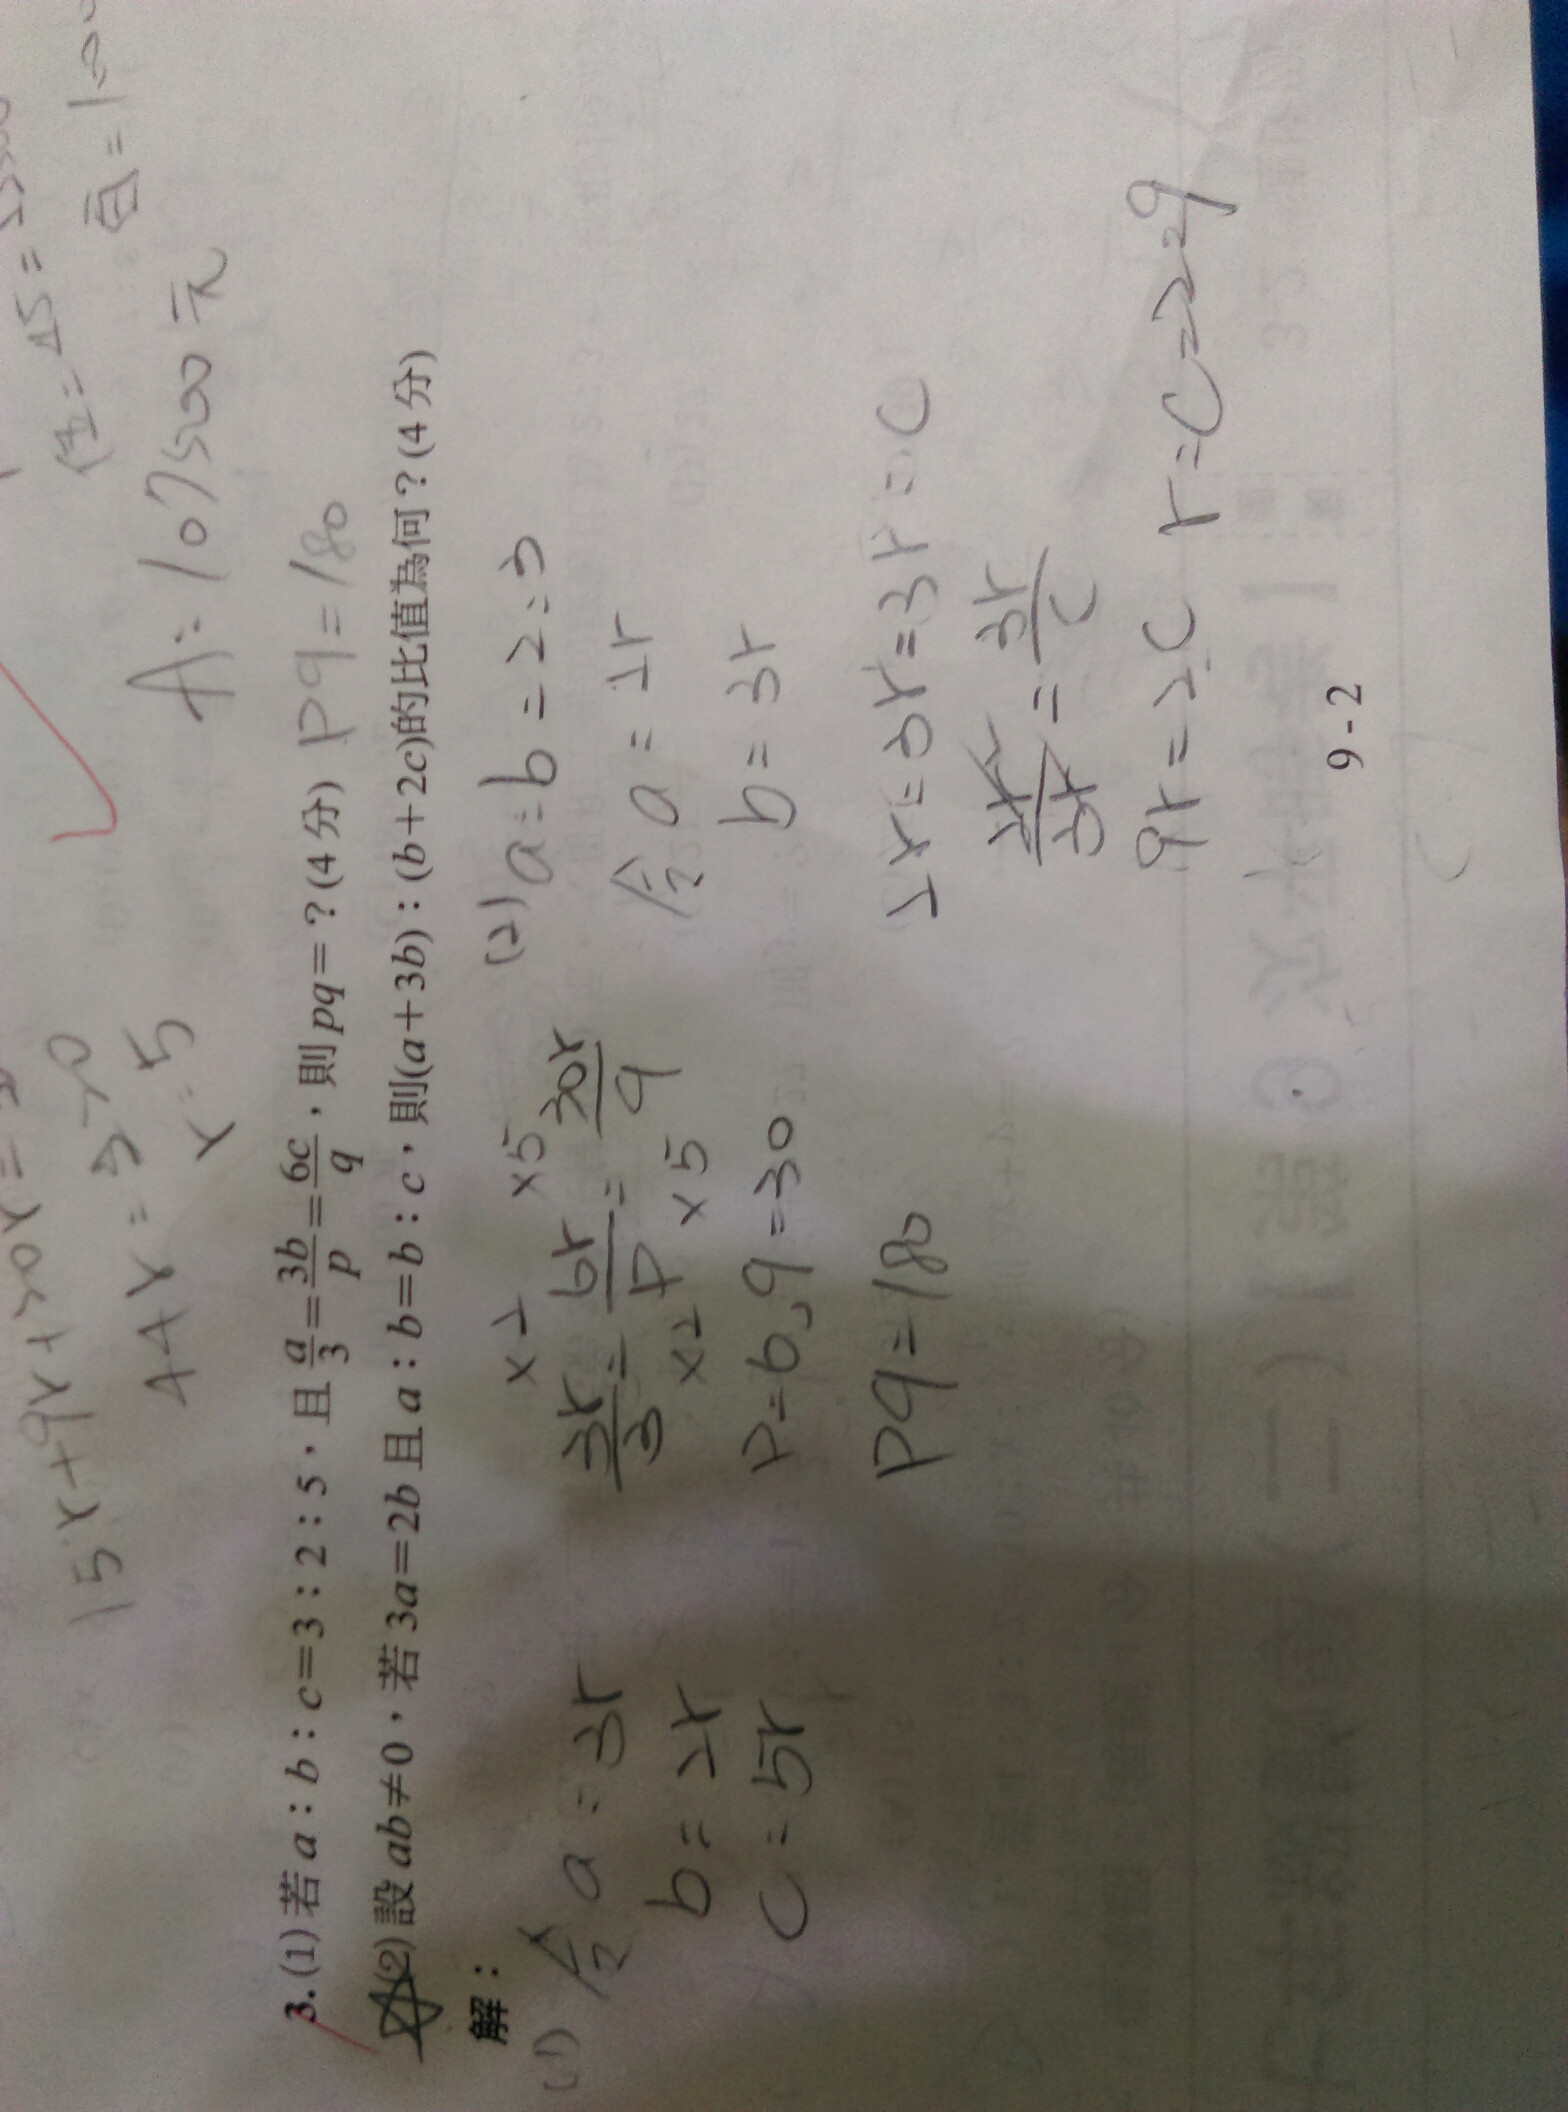 任=25=
百=1
15x+9x+20x=
44x=220
A:107500元
x=5
3.(1)若a：b：c=3：2：5，且a/3=3b/p=6c/q，則pq=？(4分) pq=180
(2)設ab≠0，若3a=2b且a：b=b：c，則(a+3b)：(b+2c)的比值為何？(4分)
解：
(1)
令a=3r
b=2r
c=5r
×2 ×5
3r/3=6r/p=30r/q
×2 ×5
p=6、q=30
pq=180
(2)a:b=2:3
令a=2r
b=3r
2r:3r=3r:c
2r/3r=3r/c
9r=2c r:c=2:9
9-2